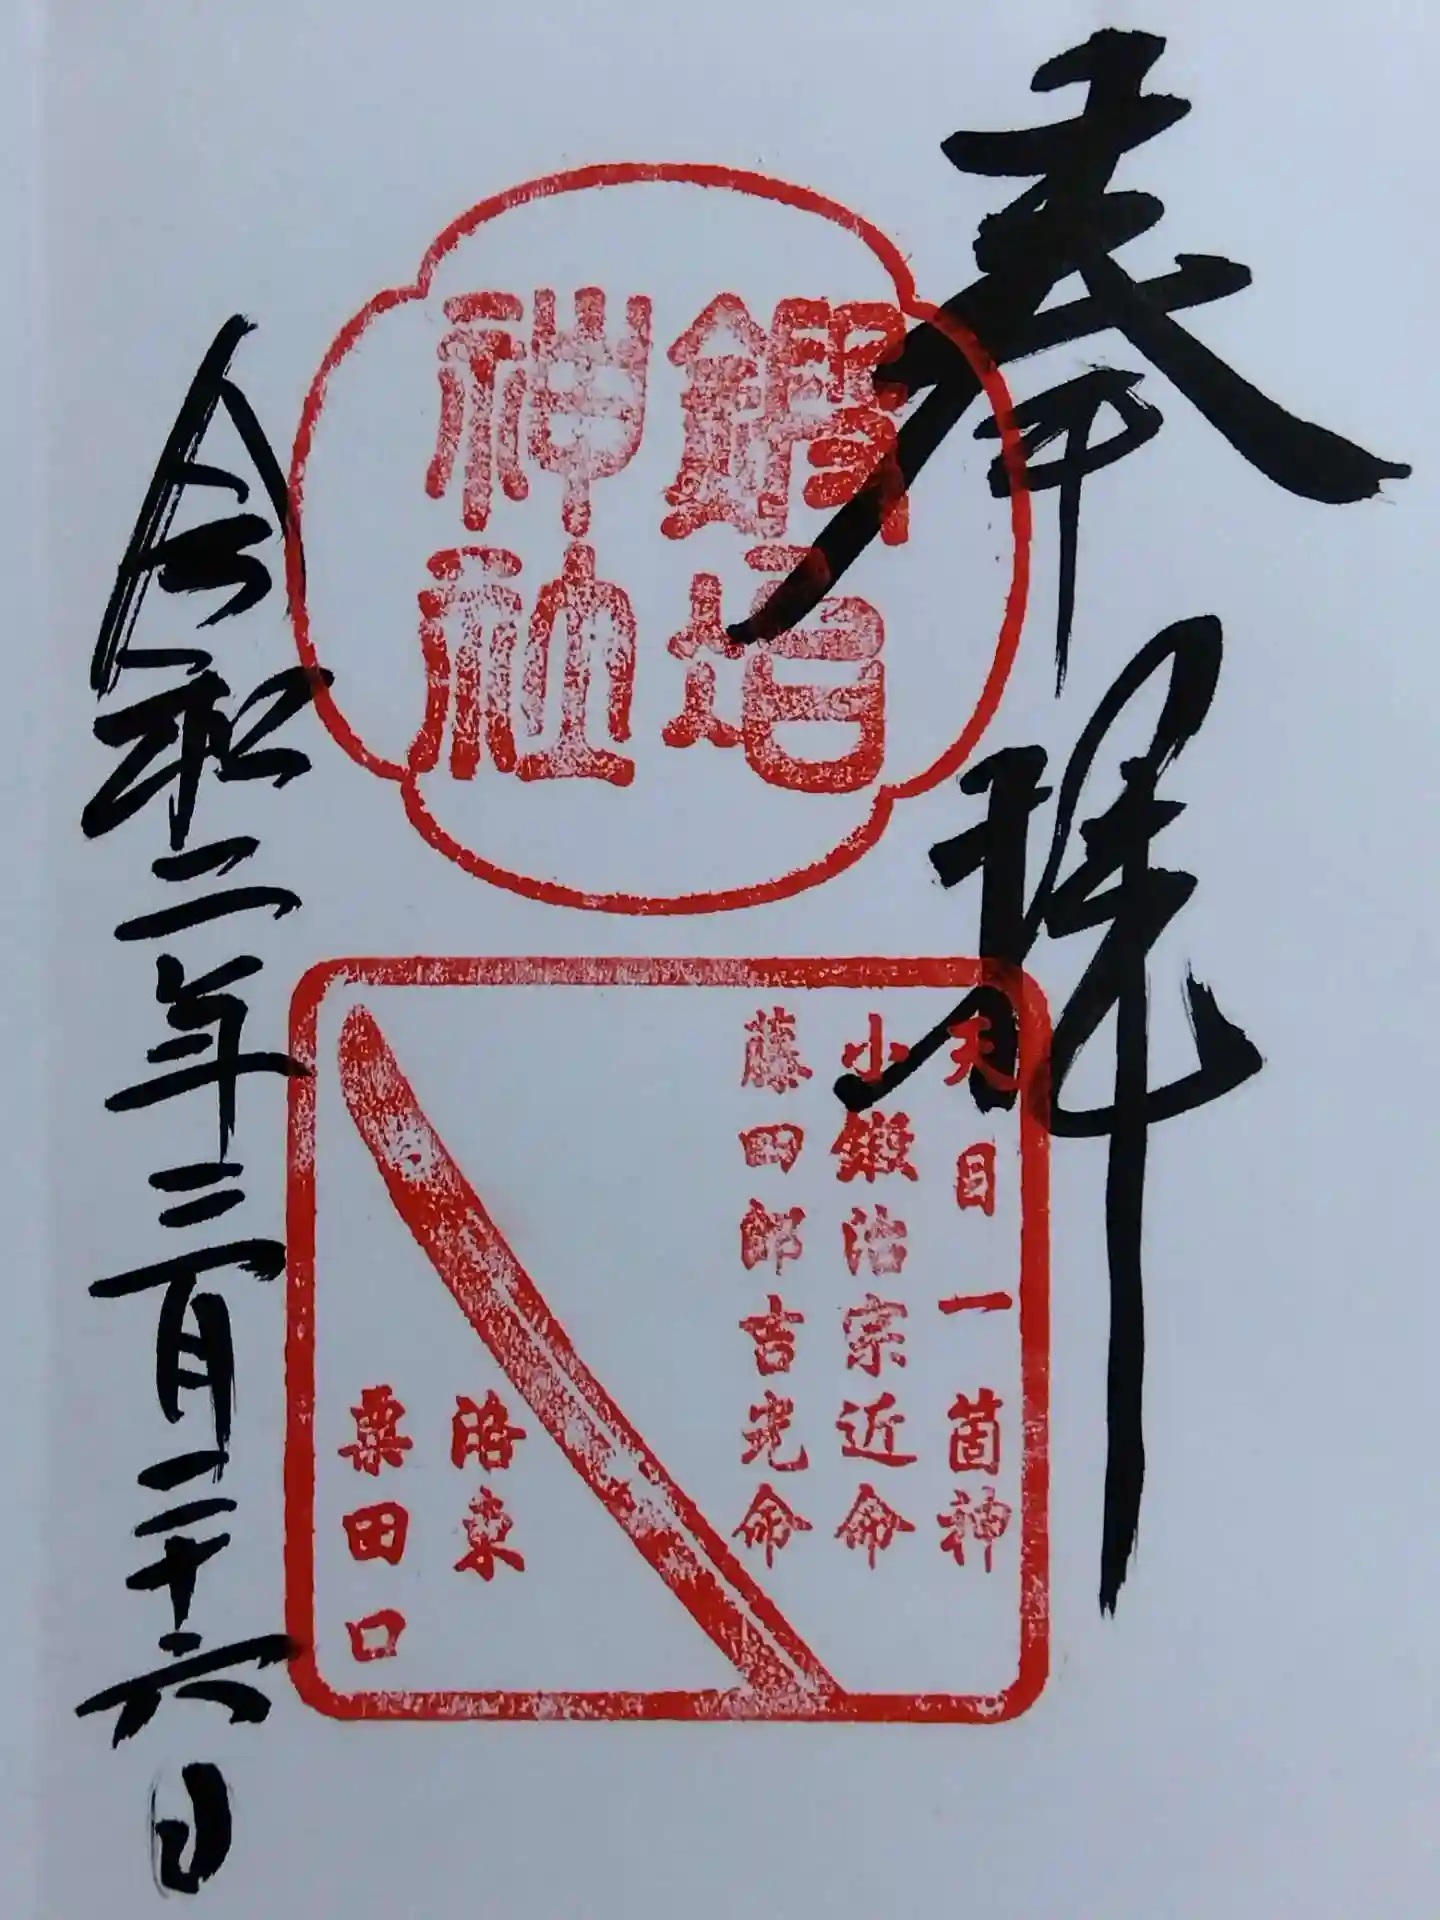 奉拝
鍛冶神社
天目一箇神
小鍛治宗近命
藤四郎吉光命
洛東
粟田口
令和二年三月二十六日